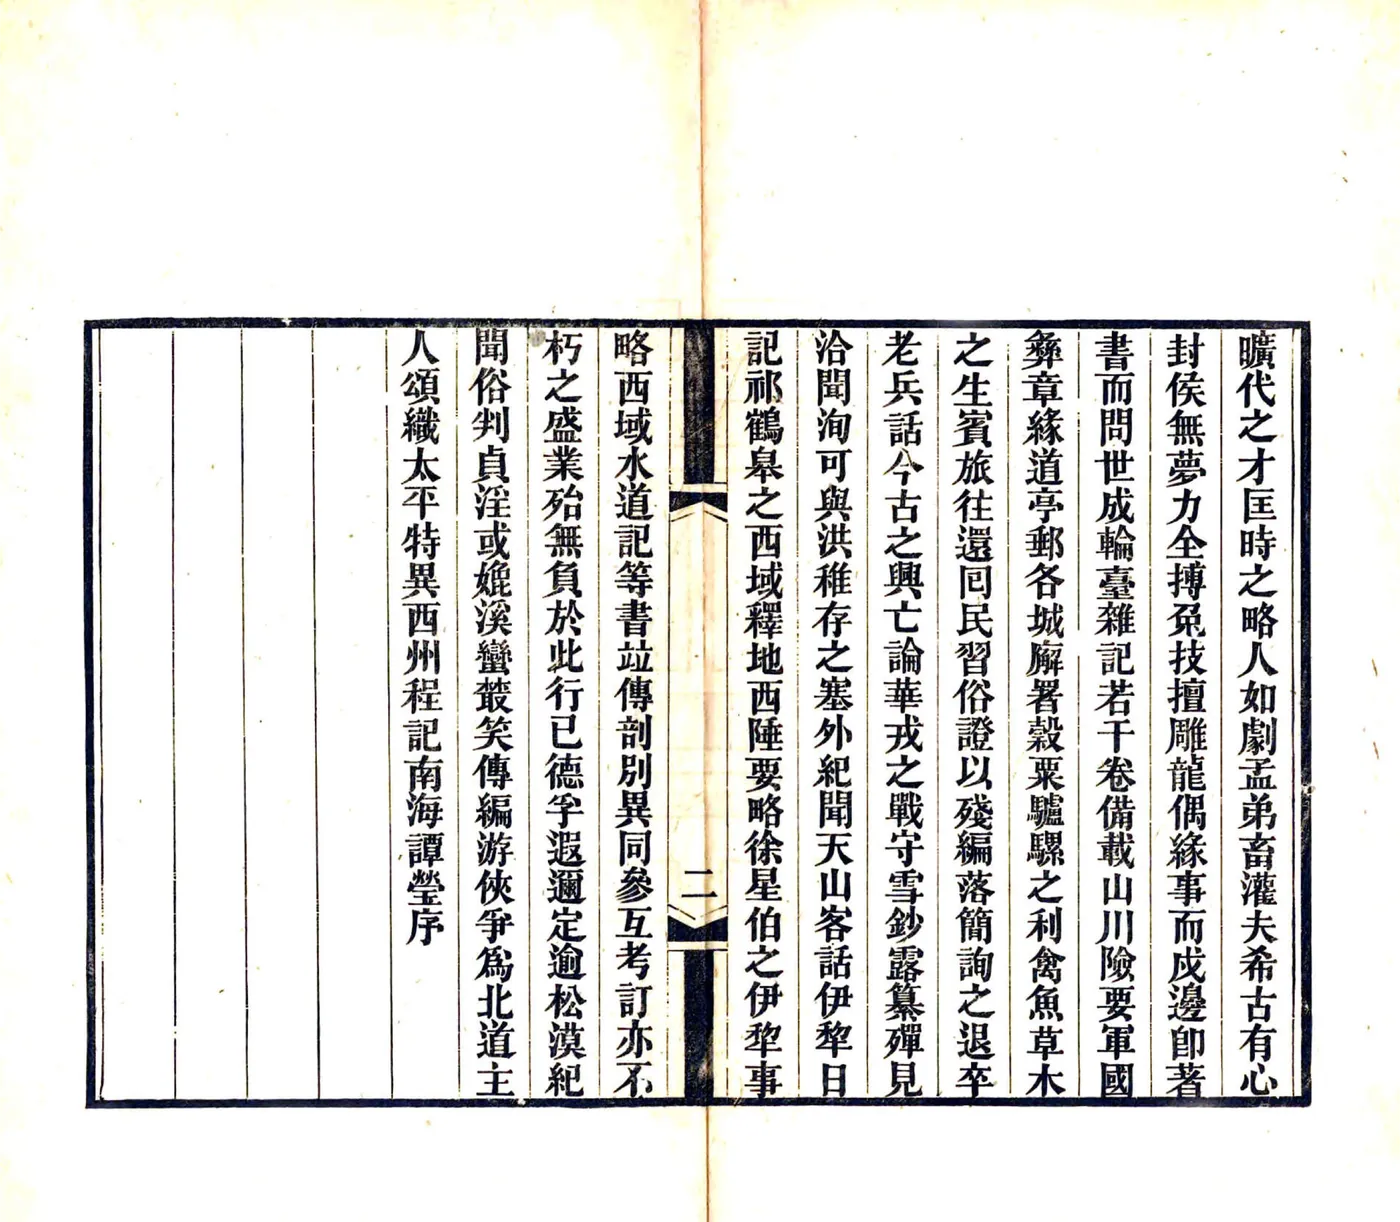 曠代之才匡時之略人如劇孟弟畜灌夫希古有心
封侯無夢力全搏兔技擅雕龍偶緣事而戍邊卽著
書而問世成輪臺雜記若干卷備載山川險要軍國
彝章緣道亭郵各城廨署穀粟驢騾之利禽魚草木
之生賓旅往還囘民習俗證以殘編落簡詢之退卒
老兵話今古之興亡論華戎之戰守雪鈔露纂殫見
洽聞洵可與洪稚存之塞外紀聞天山客話伊犂日
記祁鶴皋之西域釋地西陲要略徐星伯之伊犂事
二
略西域水道記等書竝傳剖別異同參互考訂亦不
朽之盛業殆無負於此行已德孚遐邇定逾松漠紀
聞俗判貞淫或媲溪蠻叢笑傳編游俠爭爲北道主
人頌織太平特異西州程記南海譚瑩序